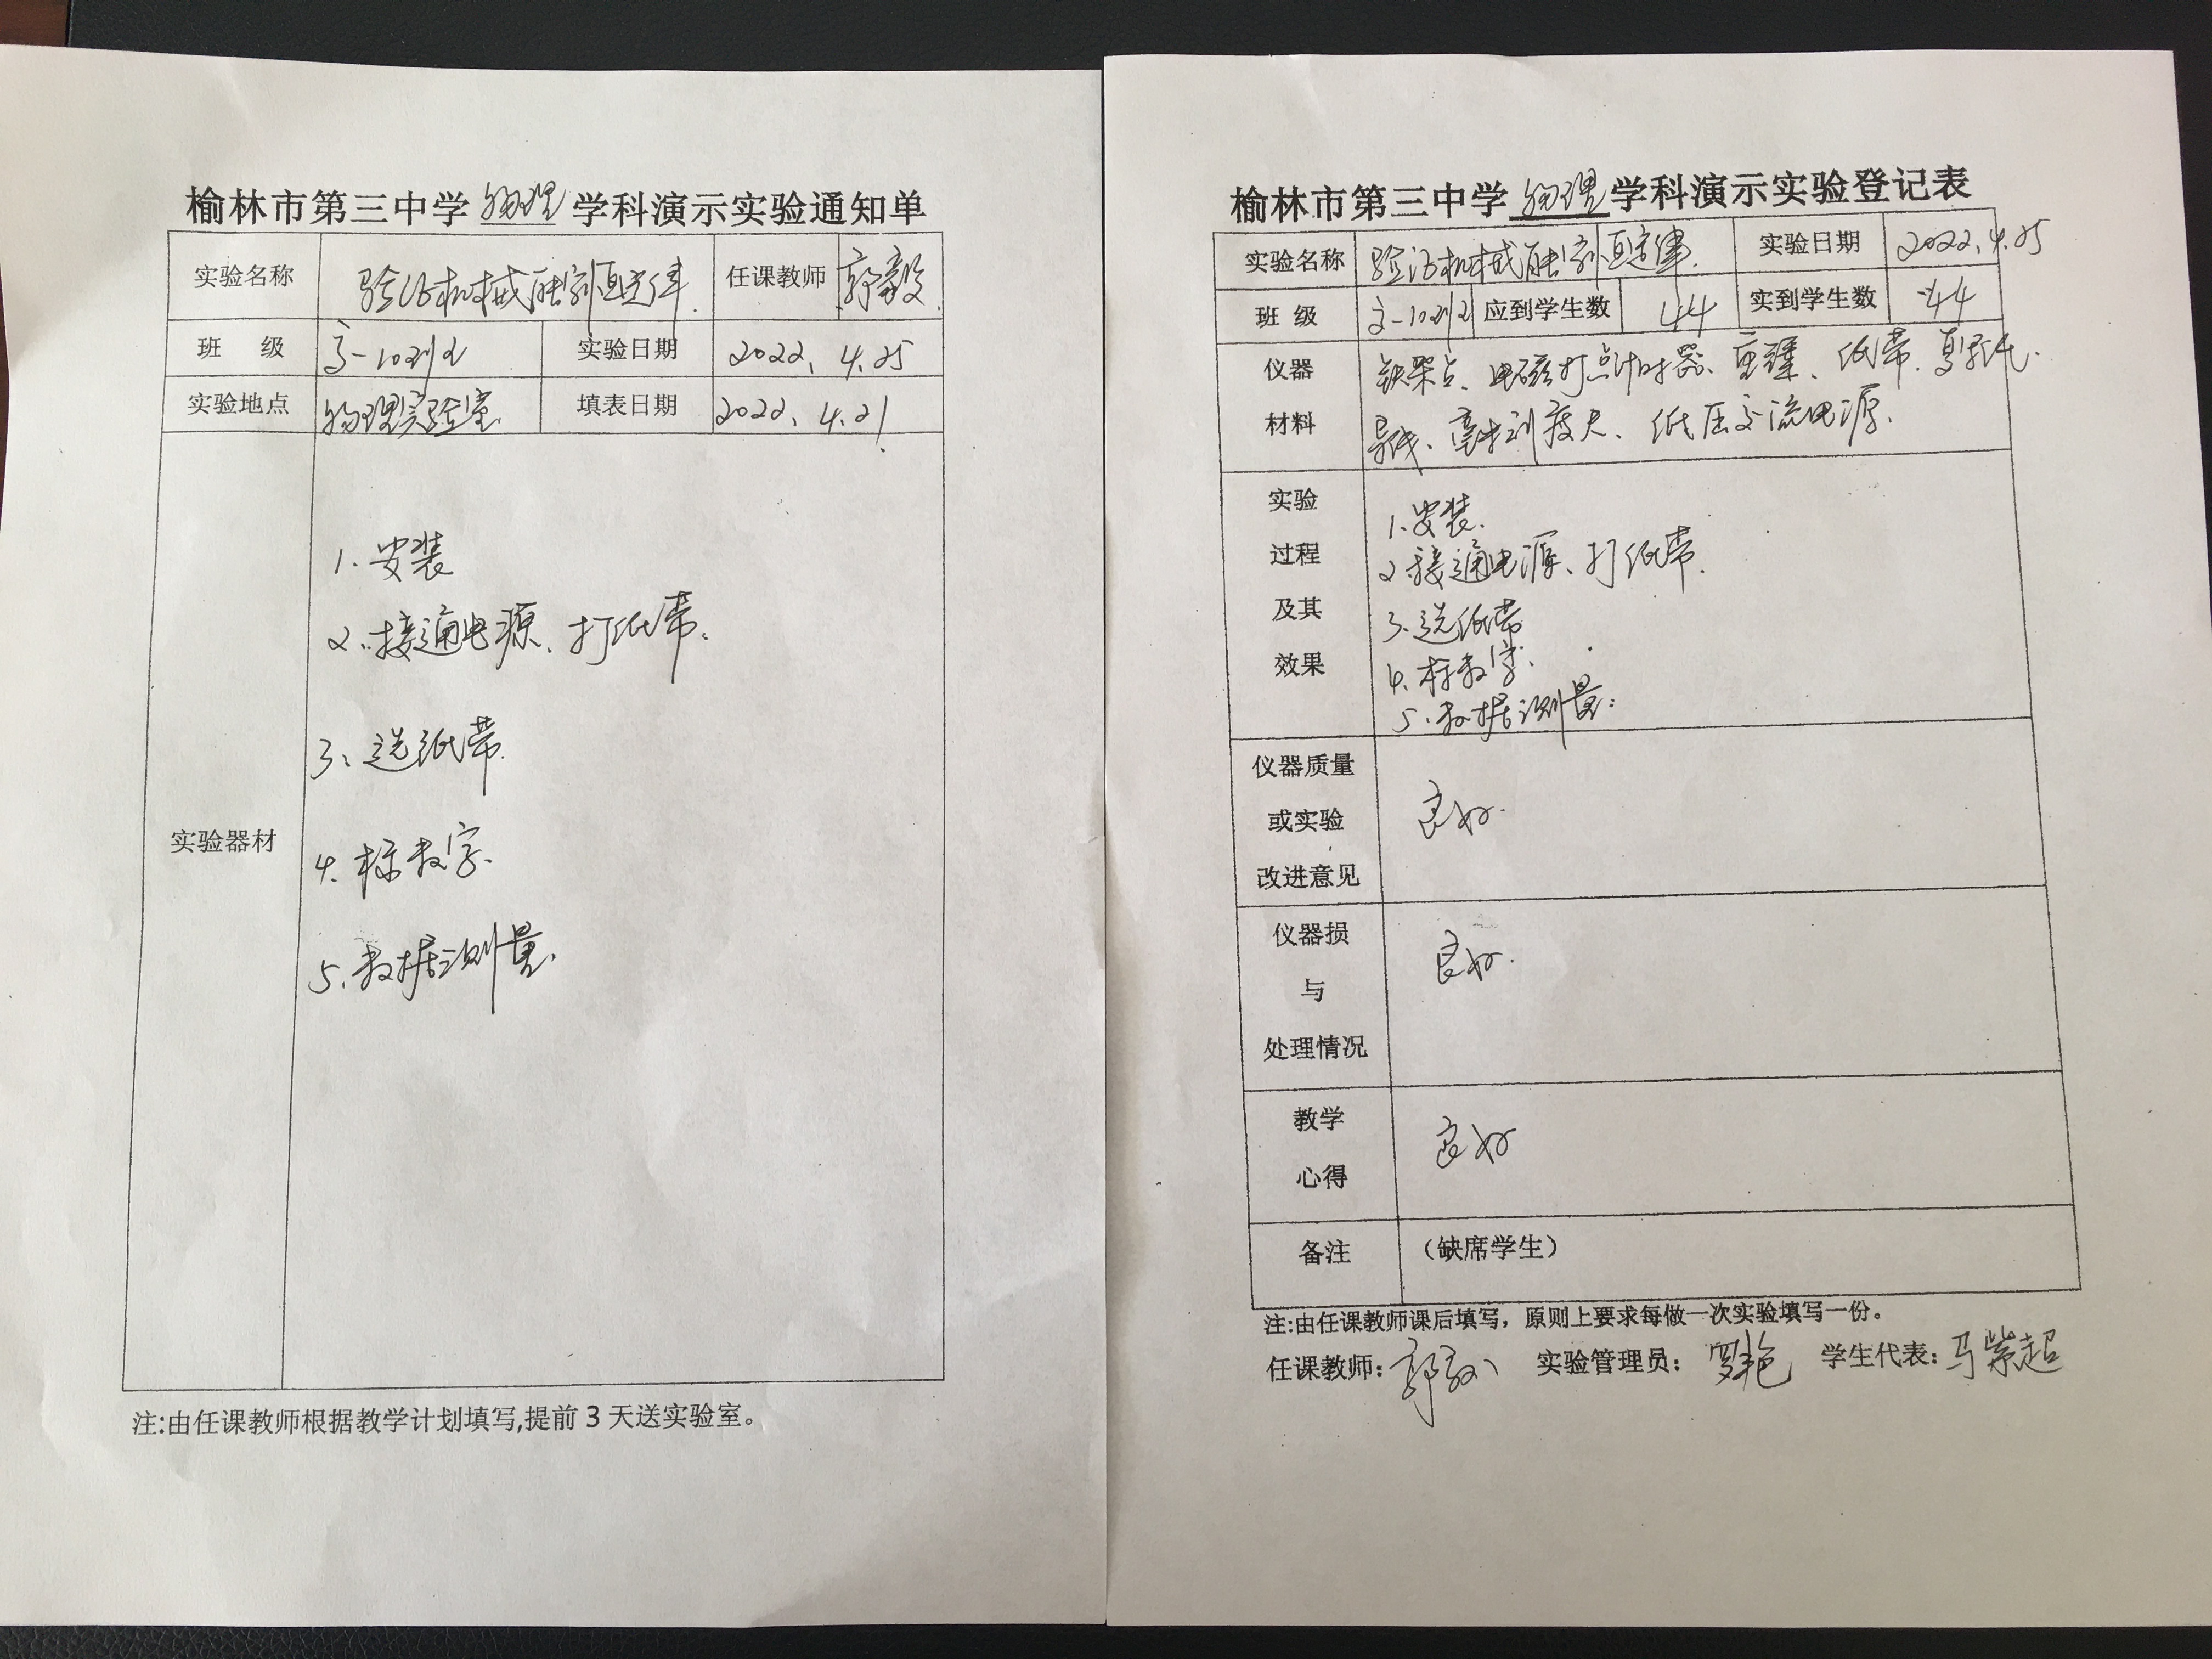 榆林市第三中学 物理 学科演示实验通知单
实验名称 验证机械能守恒定律. 任课教师 郭毅
班 级 高一10班 实验日期 2022.4.25
实验地点 物理实验室 填表日期 2022.4.21
实验器材
1.安装
2.接通电源、打纸带.
3、选纸带.
4.标数字.
5.数据测量.
注:由任课教师根据教学计划填写,提前3天送实验室。
榆林市第三中学 物理 学科演示实验登记表
实验名称 验证机械能守恒定律. 实验日期 2022.4.25
班 级 高一10班 应到学生数 44 实到学生数 44
仪器 铁架台、电磁打点计时器、重锤、纸带、复写纸.
材料 导线、毫米刻度尺、低压交流电源.
实验
过程
及其
效果
1.安装.
2.接通电源、打纸带.
3.选纸带
4.标数字.
5.数据测量.
仪器质量
或实验
改进意见
良好.
仪器损
与
处理情况
良好.
教学
心得
良好
备注 （缺席学生）
注:由任课教师课后填写，原则上要求每做一次实验填写一份。
任课教师:郭毅 实验管理员: 罗艳 学生代表:马紫超